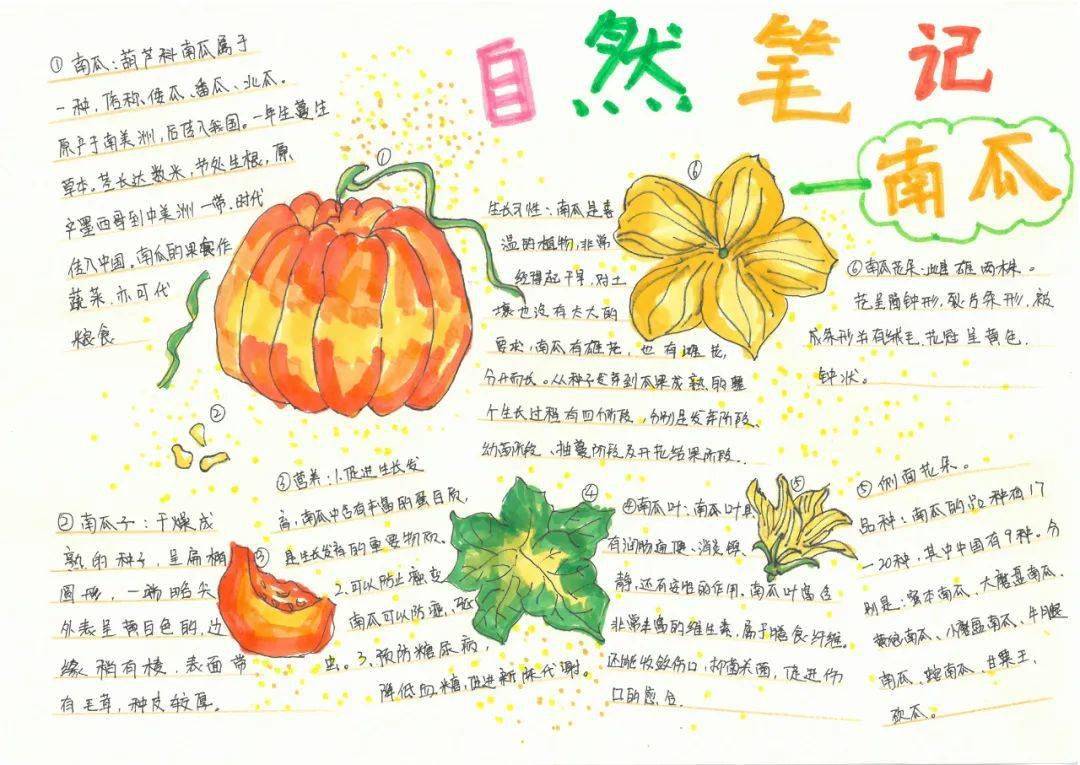 自然笔记
南瓜
①
① 南瓜:葫芦科南瓜属于
一种,俗称、倭瓜、番瓜、北瓜。
原产于南美洲,后传入我国。一年生蔓生
草本。茎长达数米,节处生根,原
产墨西哥到中美洲一带,时代
传入中国。南瓜的果实作
蔬菜,亦可代
粮食
⑥
生长习性:南瓜是喜
温的植物,非常
经得起干旱,对土
壤也没有太大的
要求,南瓜有雄花,也有雌花,
分开而长。从种子发芽到瓜果成熟的整
个生长过程有四个阶段,分别是发芽阶段、
幼苗阶段、抽蔓阶段及开花结果阶段..
⑥南瓜花朵:雌雄两株。
花呈筒钟形,裂片条形,被
成条形并有绒毛,花冠呈黄色,
钟状。
②
② 南瓜子:干燥成
熟的种子,呈扁椭
圆形,一端略尖
外表呈黄白色的,边
缘稍有棱,表面带
有毛茸,种皮较厚。
③
③营养:1.促进生长发
育,南瓜中含有丰富的蛋白质,
是生长发育的重要物质。
2.可以防止癌变
南瓜可以防癌,砒
虫。3、预防糖尿病,
降低血糖,促进新陈代谢。
④
④南瓜叶:南瓜叶具
有润肠通便、消炎镇
静,还有
的作用。南瓜叶富含
非常丰富的维生素,属于膳食纤维。
还能收敛伤口,抑菌杀菌,促进伤
口的愈合.
⑤
⑤ 侧面花朵。
品种:南瓜的品种有17
-20种,其中中国有9种。分
别是:蜜本南瓜、大磨盘南瓜.
黄冠南瓜、小磨盘南瓜、牛腿
南瓜、蛇南瓜、甘栗王、
砍瓜。